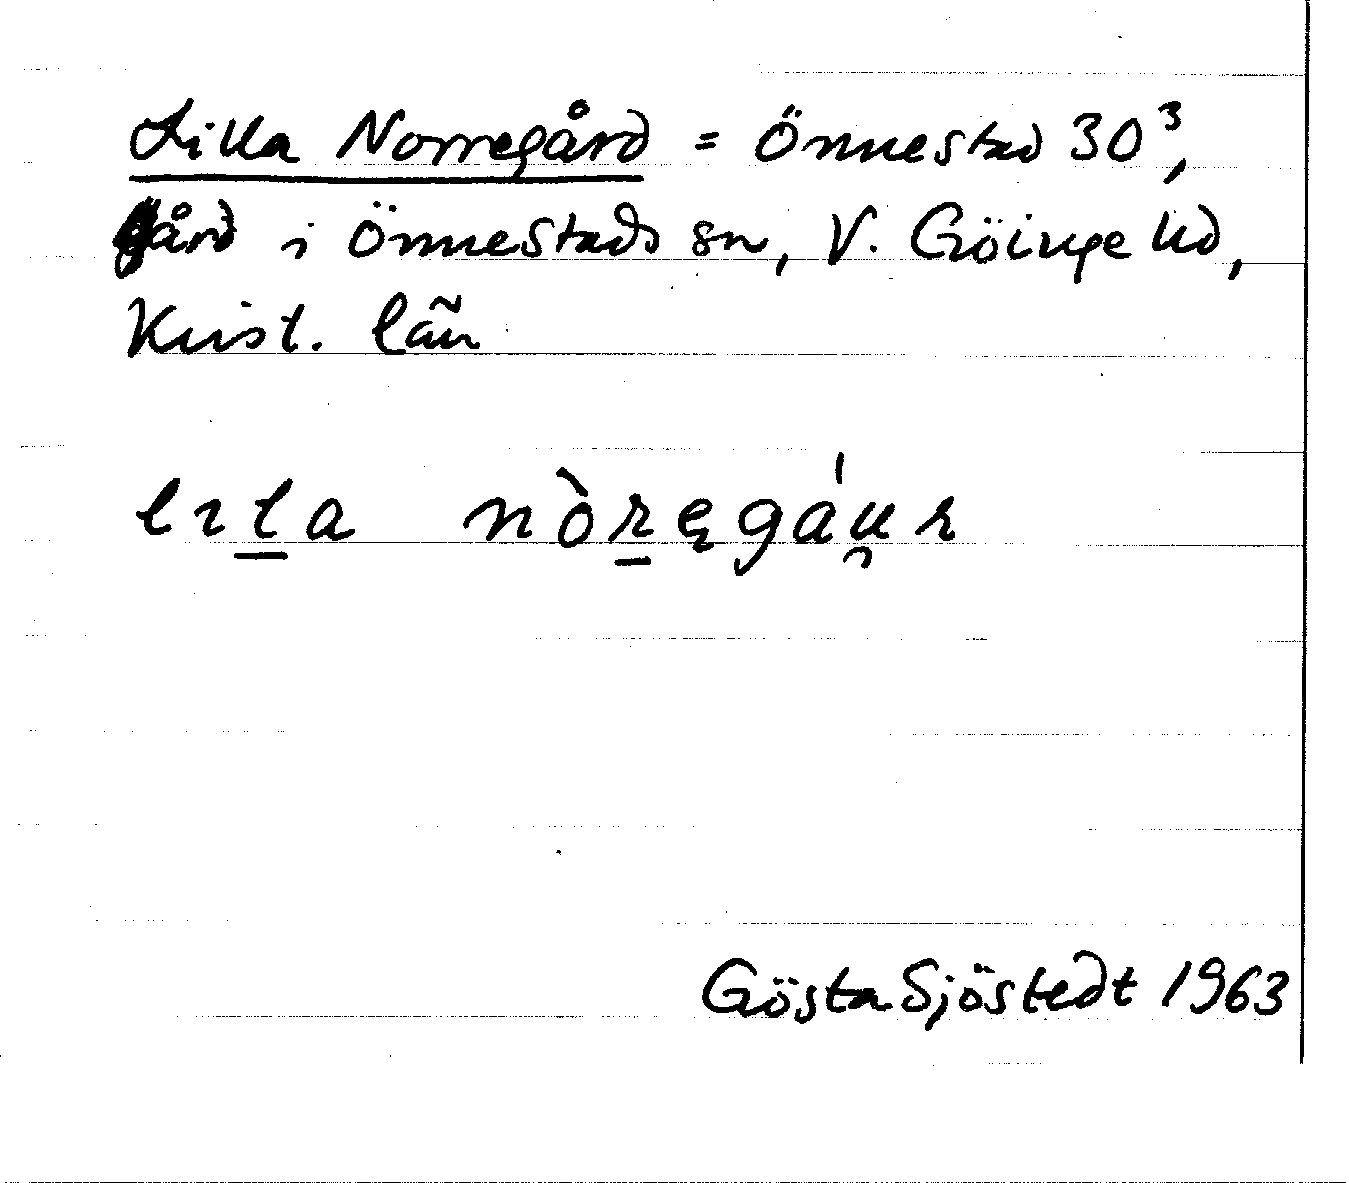 Lilla Norregård = Önnestad 30³,
gård i Önnestads sn, V. Göinge hd,
Krist. län
lɪl̲a nòr̲ęgáu̯r
Gösta Sjöstedt 1963